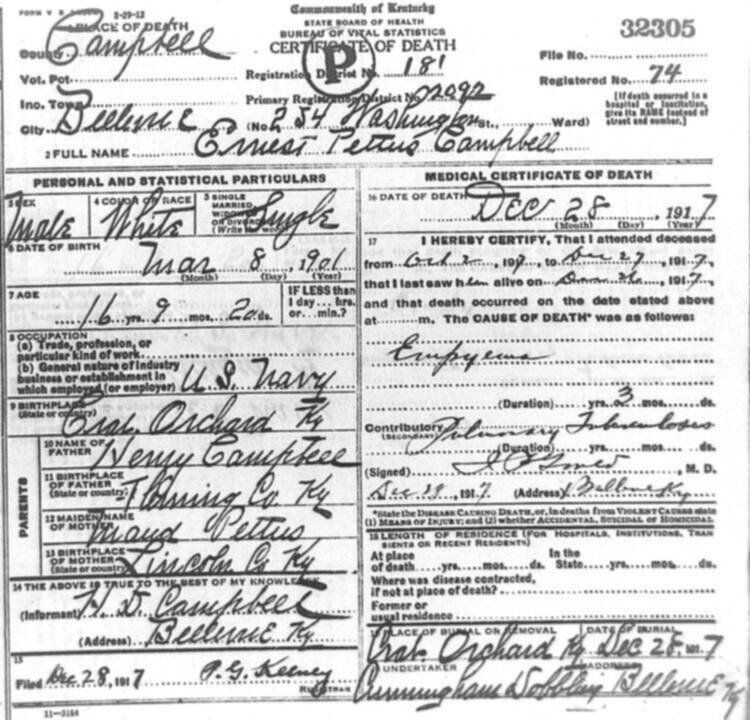 FORM V. S.
2-29-12
1 PLACE OF DEATH
County Campbell
Vot. Pct.
Inc. Town
City Bellevue
Commonwealth of Kentucky
STATE BOARD OF HEALTH
BUREAU OF VITAL STATISTICS
CERTIFICATE OF DEATH
P
Registration District No. 181
Primary Registration District No. 2092
(No. 254 Washington St., Ward)
32305
File No.
Registered No. 74
[If death occurred in a
hospital or institution,
give its NAME instead of
street and number.]
2 FULL NAME Ernest Pettus Campbell
PERSONAL AND STATISTICAL PARTICULARS
3 SEX Male
4 COLOR OR RACE White
5 SINGLE
MARRIED,
WIDOWED
OR DIVORCED
(Write the word) Single
6 DATE OF BIRTH
Mar 8, 1901
(Month) (Day) (Year)
7 AGE
16 yrs. 9 mos. 20 ds.
IF LESS than
1 day.... hrs.
or.... min.?
8 OCCUPATION
(a) Trade, profession, or
particular kind of work
(b) General nature of industry
business or establishment in
which employed (or employer) U. S. Navy
9 BIRTHPLACE
(State or country) Crab Orchard Ky
PARENTS
10 NAME OF
FATHER Henry Campbell
11 BIRTHPLACE
OF FATHER
(State or country) Fleming Co Ky
12 MAIDEN NAME
OF MOTHER Maud Pettus
13 BIRTHPLACE
OF MOTHER
(State or country) Lincoln Co Ky
14 THE ABOVE IS TRUE TO THE BEST OF MY KNOWLEDGE
(Informant) Campbell
(Address) Bellevue Ky
15
Filed Dec 28, 1917 P. G. Keeney
REGISTRAR
11-3184
MEDICAL CERTIFICATE OF DEATH
16 DATE OF DEATH
Dec 28, 1917
(Month) (Day) (Year)
17 I HEREBY CERTIFY, That I attended deceased
from Oct 2, 1917, to Dec 27, 1917,
that I last saw him alive on Dec 26, 1917,
and that death occurred on the date stated above
at m. The CAUSE OF DEATH* was as follows:
Empyema
(Duration) yrs. 3 mos. ds.
Contributory Pulmonary Tuberculosis
(SECONDARY)
(Duration) yrs. mos. ds.
(Signed) , M. D.
Dec 28, 1917 (Address) Bellevue Ky
*State the DISEASE CAUSING DEATH, or, in deaths from VIOLENT CAUSES state
(1) MEANS OF INJURY; and (2) whether ACCIDENTAL, SUICIDAL OR HOMICIDAL
18 LENGTH OF RESIDENCE (FOR HOSPITALS, INSTITUTIONS, TRAN
SIENTS OR RECENT RESIDENTS)
At place
of death yrs. mos. ds.
In the
State yrs. mos. ds.
Where was disease contracted,
if not at place of death?
Former or
usual residence
19 PLACE OF BURIAL OR REMOVAL Crab Orchard Ky
DATE OF BURIAL Dec 28 1917
20 UNDERTAKER Cunningham Dobbling
ADDRESS Bellevue Ky